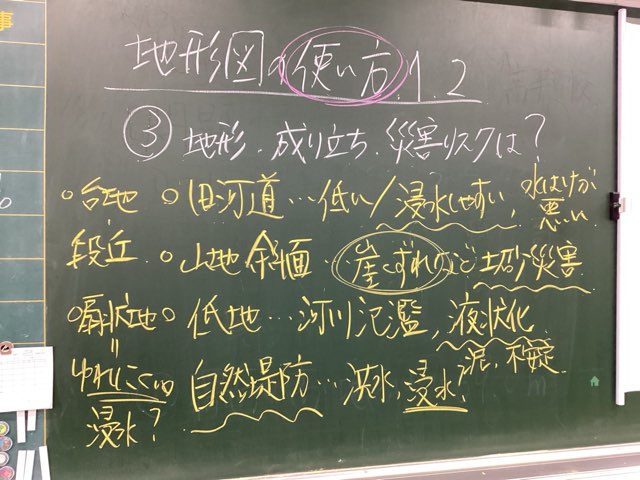 地形図の使い方.1.2
③地形.成り立ち.災害リスクは?
○台地 ○旧河道…低い/浸水しやすい,水はけが悪い
段丘 ○山地 斜面.崖くずれなど土砂災害
○扇状地 ○低地…河川氾濫,液状化
=
ゆれにくい 自然堤防…洪水,浸水? 泥,不安定
浸水?